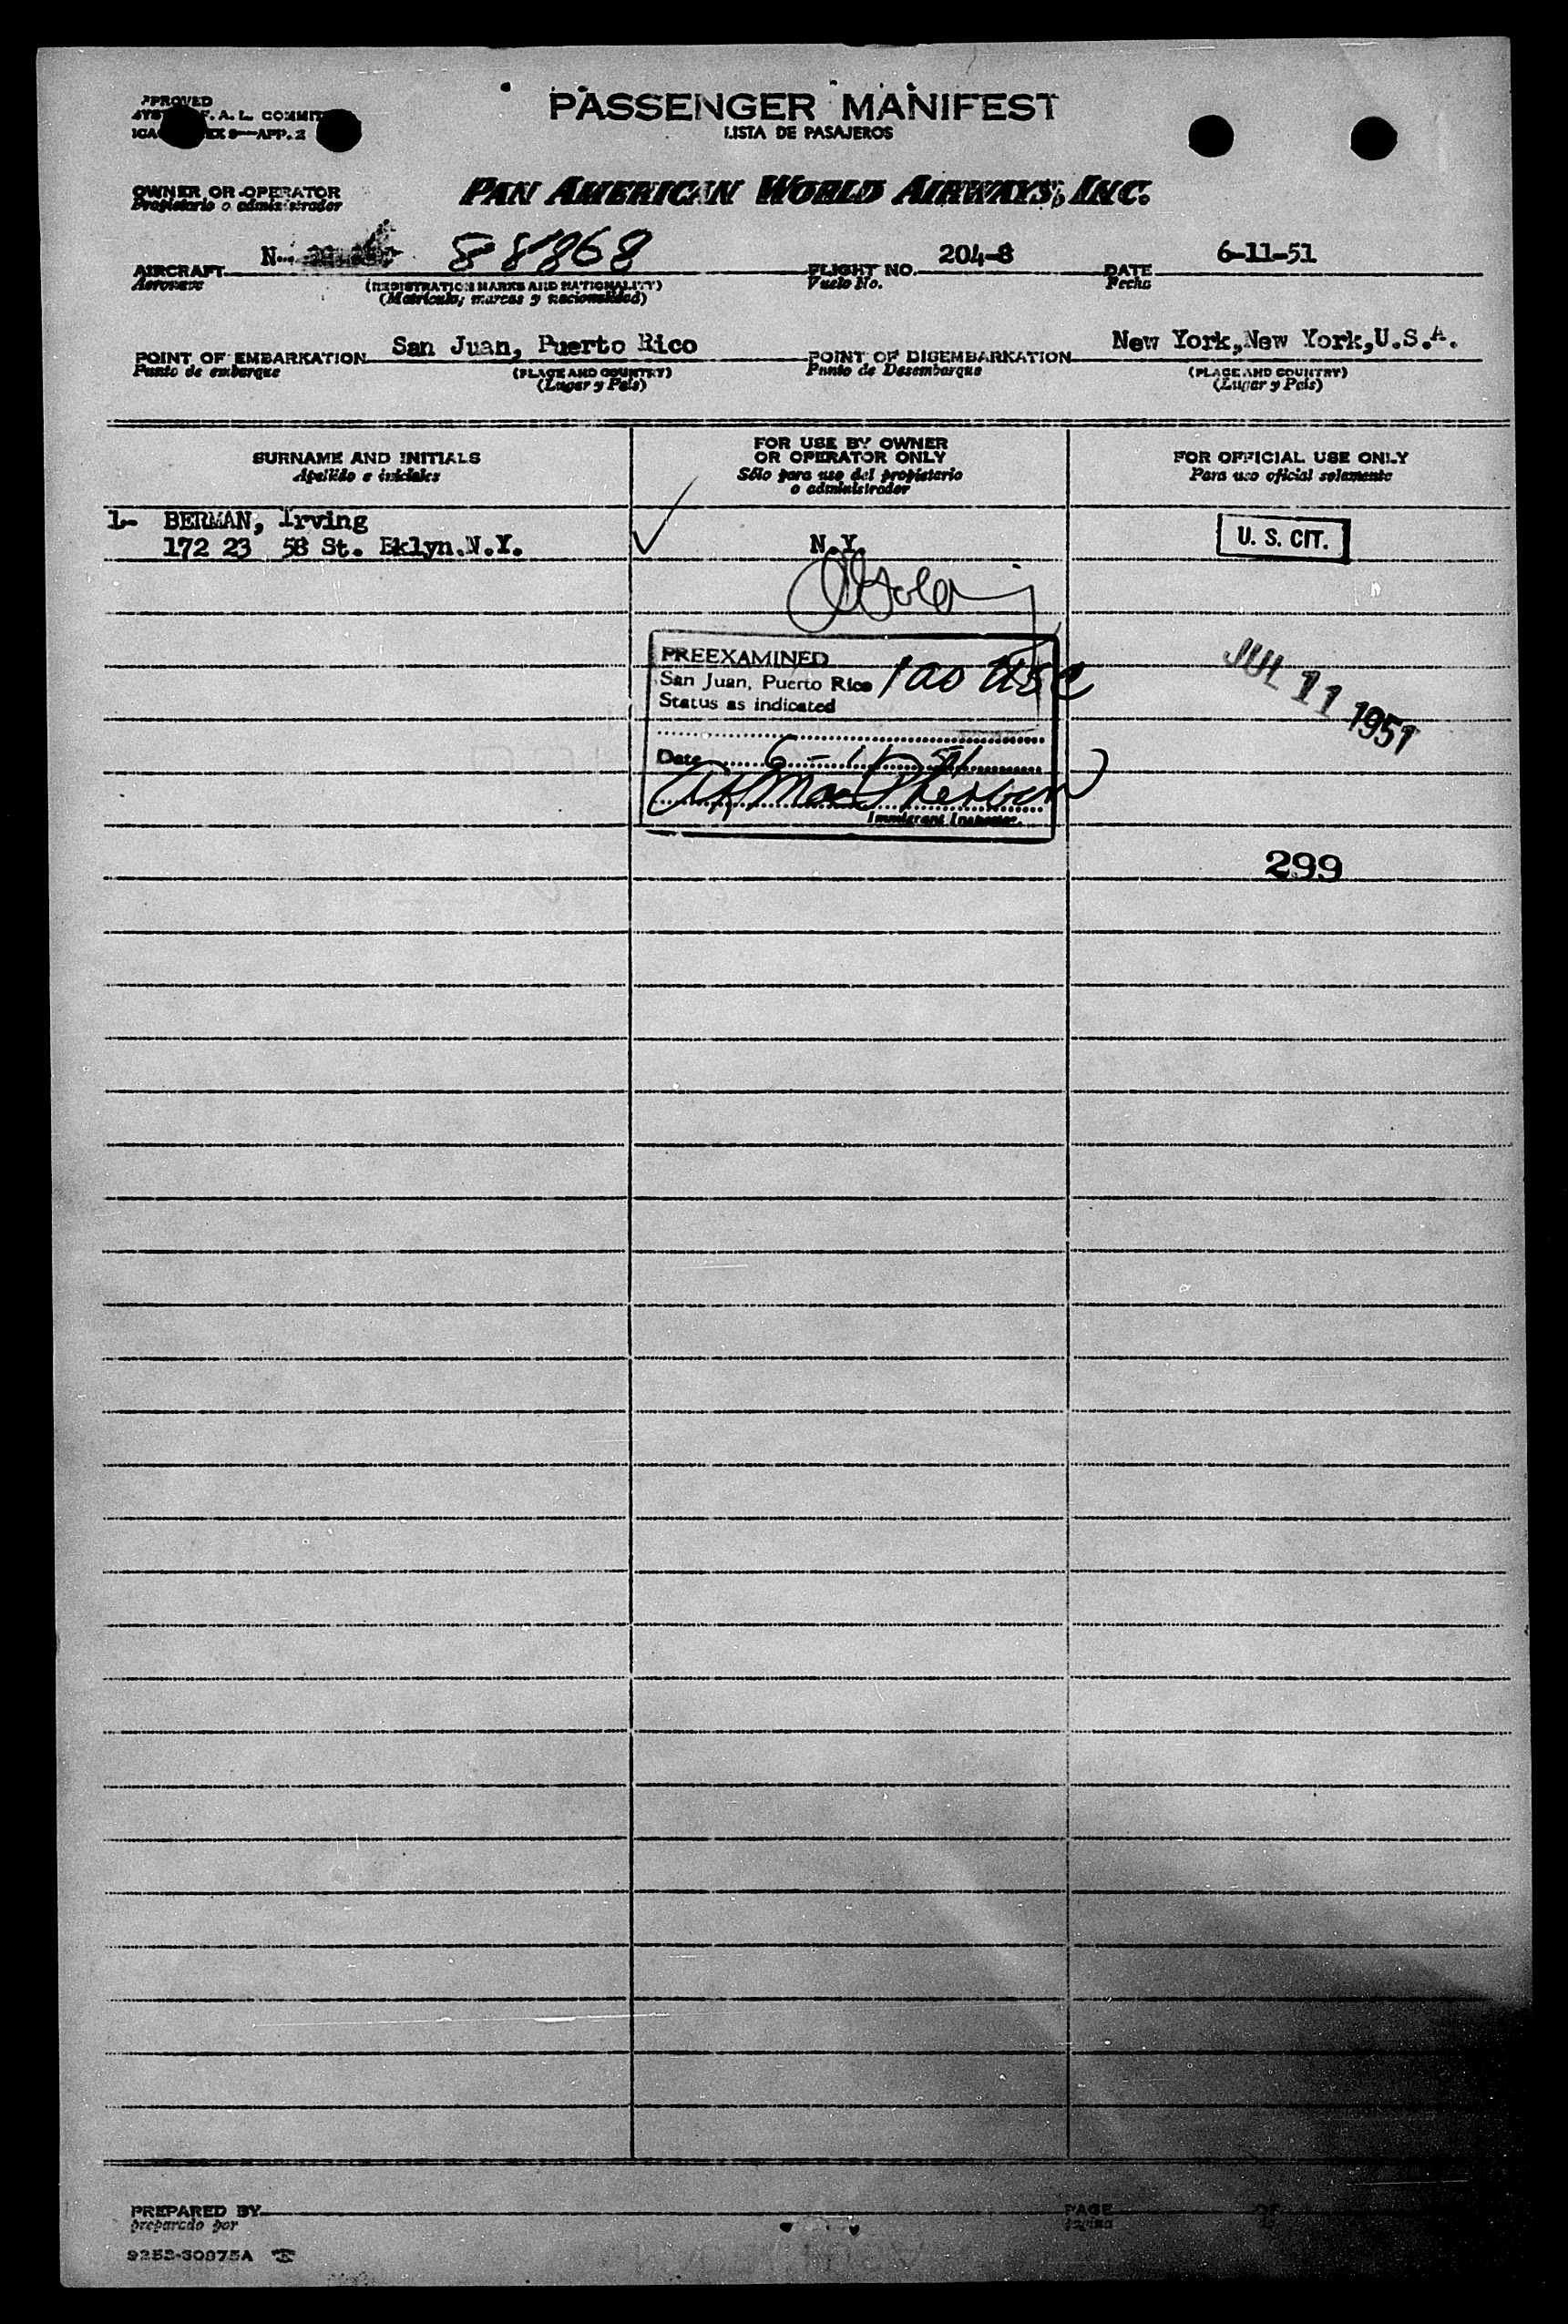 PASSENGER MANIFEST
LISTA DE PASAJEROS
F. A. L. COMMIT
EX 9—APP. 2
OWNER OR OPERATOR
Propietario o administrador
PAN AMERICAN WORLD AIRWAYS, INC.
AIRCRAFT N 88868
Aeronave
(REGISTRATION MARKS AND NATIONALITY)
(Matrícula, marcas y nacionalidad)
FLIGHT NO. 204-8
Vuelo No.
DATE 6-11-51
Fecha
POINT OF EMBARKATION San Juan, Puerto Rico
Punto de embarque
(PLACE AND COUNTRY)
(Lugar y País)
POINT OF DISEMBARKATION New York,New York,U.S.A.
Punto de Desembarque
(PLACE AND COUNTRY)
(Lugar y País)
SURNAME AND INITIALS
Apellido e iniciales
FOR USE BY OWNER
OR OPERATOR ONLY
Sólo para uso del propietario
o administrador
FOR OFFICIAL USE ONLY
Para uso oficial solamente
1- BERMAN, Irving
172 23 58 St. Bklyn.N.Y.
N.Y.
U. S. CIT.
PREEXAMINED
San Juan, Puerto Rico
Status as indicated
1 as USC
Date 6-11-51
MacPherson
Immigrant Inspector.
JUL 11 1951
299
PREPARED BY
preparado por
PAGE OF
9252-30975A